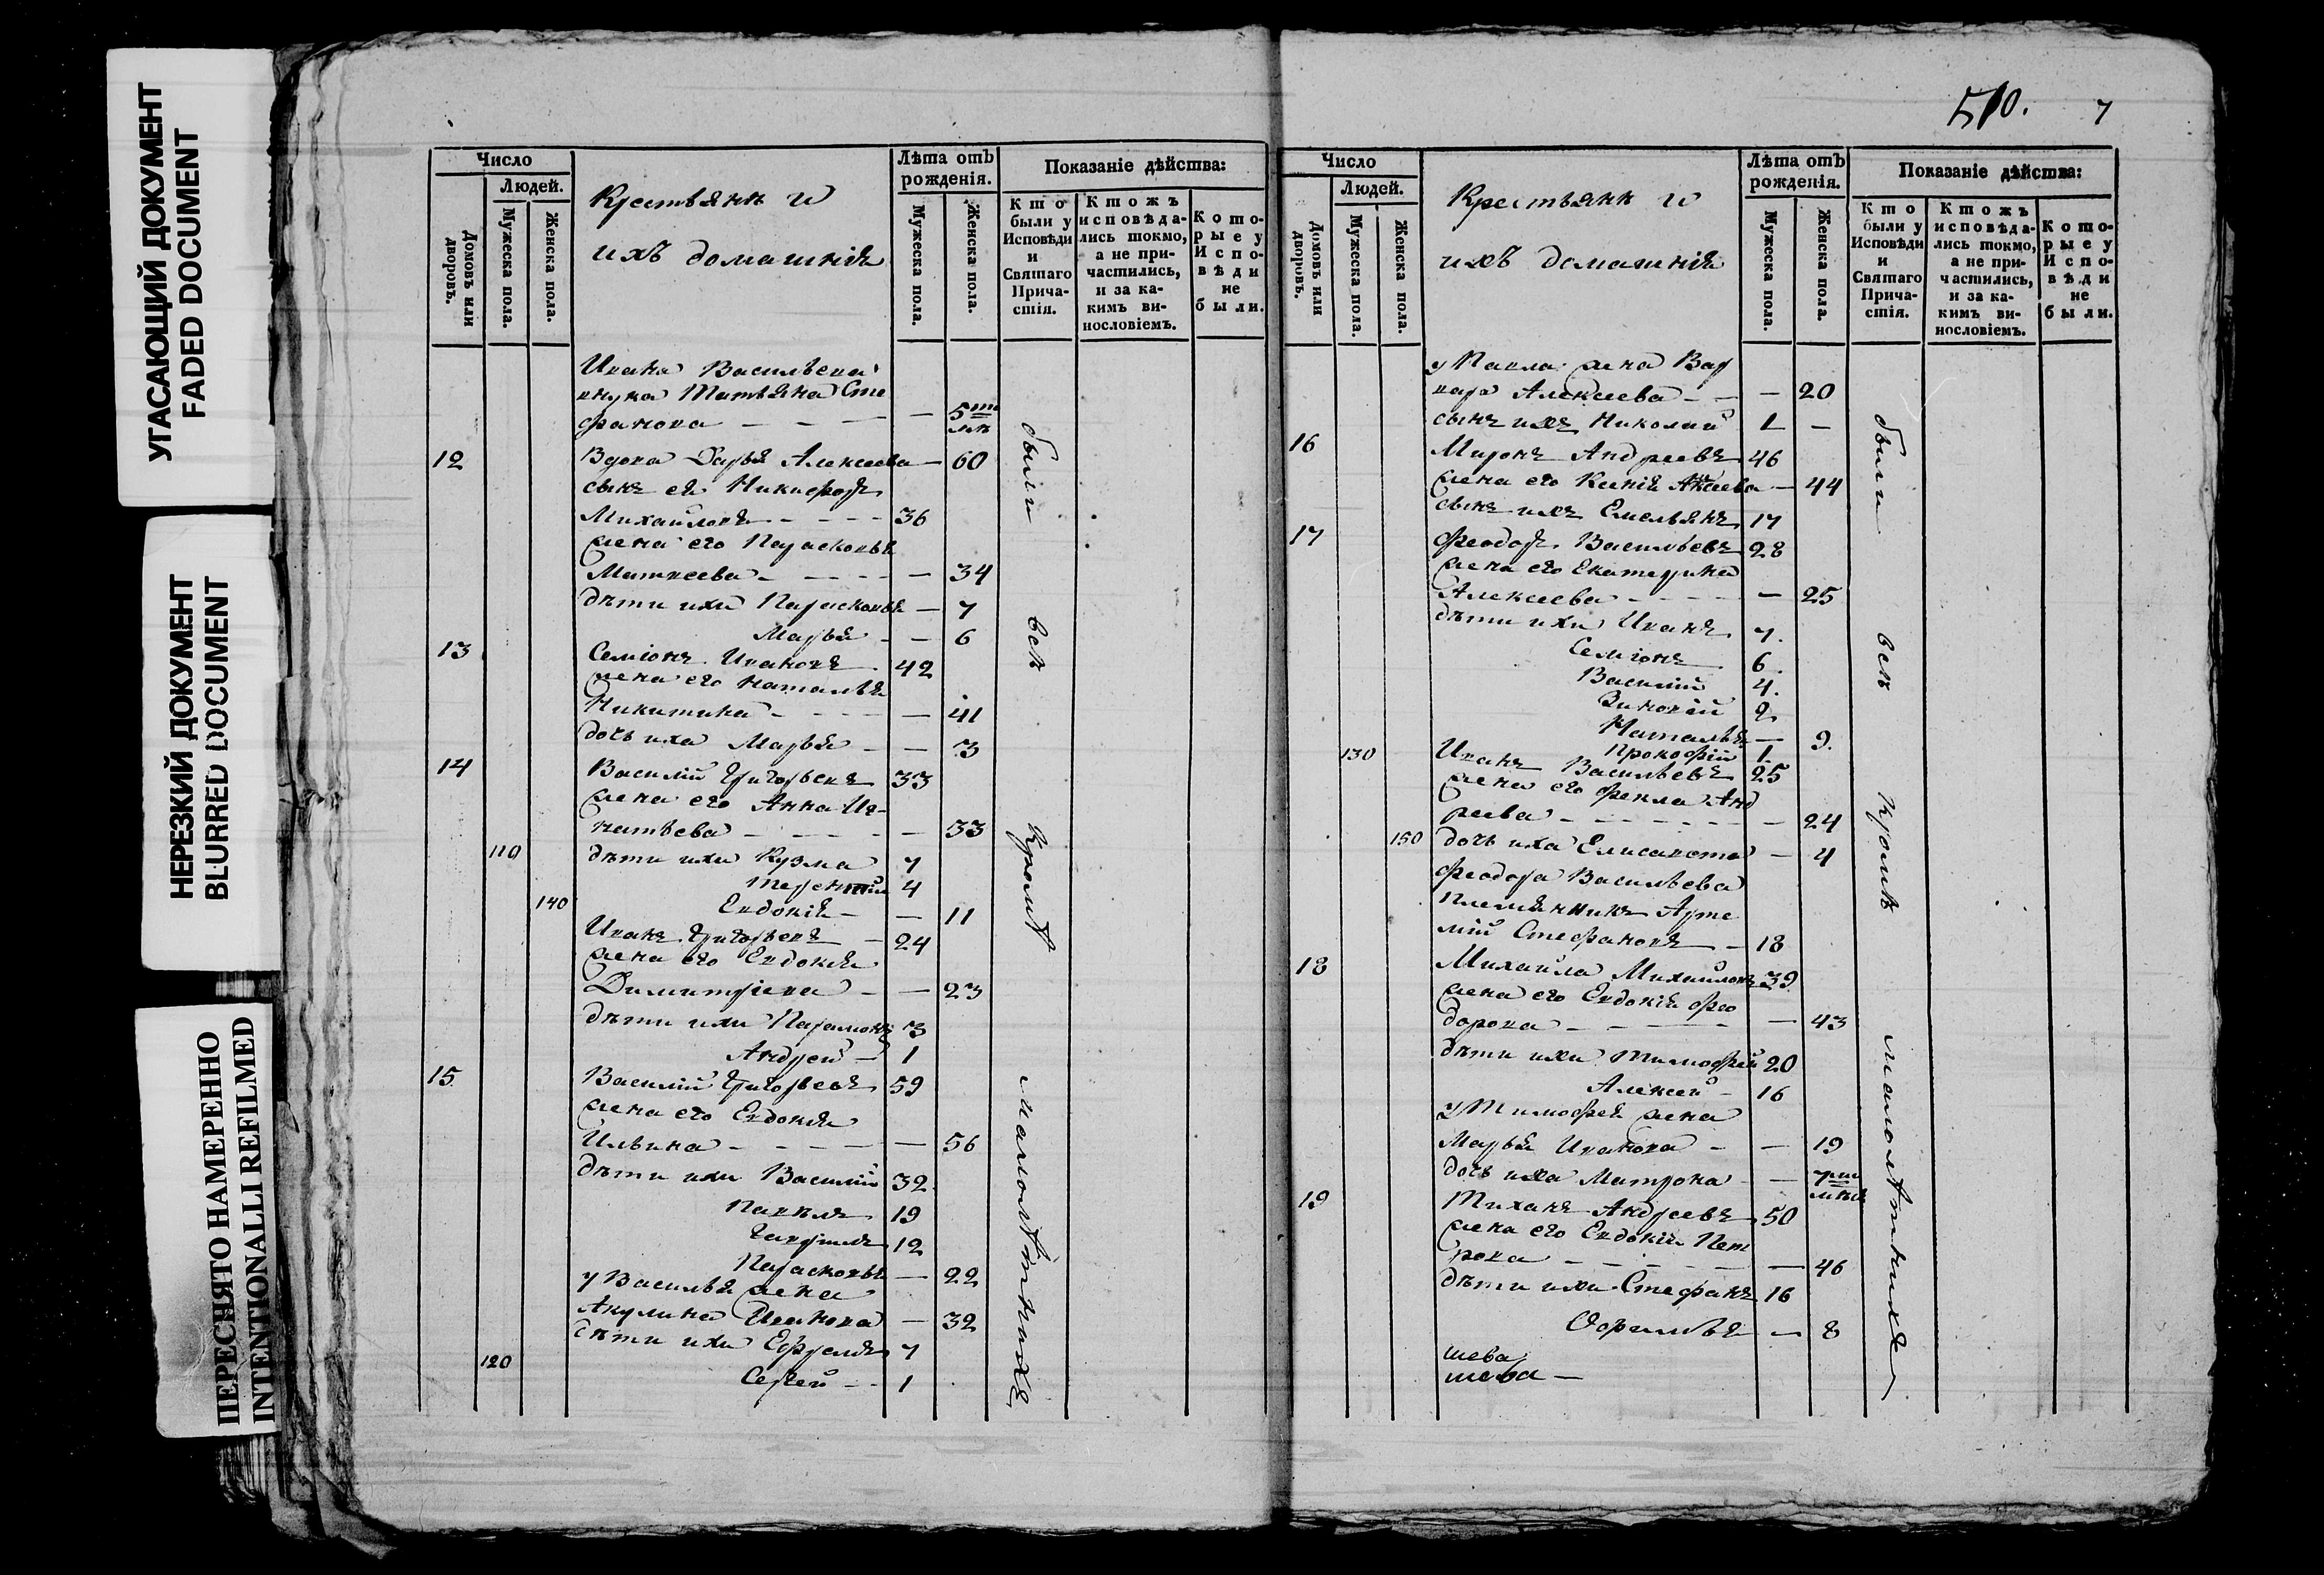 УГАСАЮЩИЙ ДОКУМЕНТ
FADED DOCUMENT
НЕРЕЗКИЙ ДОКУМЕНТ
BLURRED DOCUMENT
ПЕРЕСНЯТО НАМЕРЕННО
INTENTIONALLI REFILMED
Число
Людей.
Домовъ или дворовъ.
Мужеска пола.
Женска пола.
Крестьянѣ и
ихъ домашнія
Лѣта отъ рожденія.
Мужеска пола.
Женска пола.
Показаніе дѣйства:
Кто были у Исповѣди и Святаго Причастія.
Ктожъ исповѣдались токмо, а не причастились, и за какимъ винословіемъ.
Которые у Исповѣди не были.
Ивана Васильева
внука Татьяна Сте
фанова — — — — 5ти мѣ
12 Вдова Дарья Алексеева — 60
сынъ ея Никифоръ
Михайловъ - - - - 36
жена его Парасковья
Матвеева - - - - — 34
дѣти ихъ Парасковья — 7
Марья - — 6
13 Семіонъ Ивановъ 42
жена его Наталья
Никитина - - - - — 41
дочь ихъ Марья — — 3
14 Василій Григорьевъ 33
жена его Анна Иг-
натьева - - - - — 33
110 дѣти ихъ Кузма 7
Терентій 4
140 Евдокія - — 11
Иванъ Григорьевъ — 24
жена его Евдокія
Димитріева — — 23
дѣти ихъ Парамонъ 3
Андрей — 1
15 Василій Григорьевъ 59
жена его Евдокія
Ильина - - - - — 56
дѣти ихъ Василій 32
Павелъ 19
Гаврилъ 12
Парасковья — 22
у Василья жена
Акулина Иванова — 32
дѣти ихъ Ефремъ 7
120 Сергей - - 1
были всѣ кромѣ малолѣтнихъ
510. 7
Число
Людей.
Домовъ или дворовъ.
Мужеска пола.
Женска пола.
Крестьянѣ и
ихъ домашнія
Лѣта отъ рожденія.
Мужеска пола.
Женска пола.
Показаніе дѣйства:
Кто были у Исповѣди и Святаго Причастія.
Ктожъ исповѣдались токмо, а не причастились, и за какимъ винословіемъ.
Которые у Исповѣди не были.
у Павла жена Вар
вара Алексеева - - — 20
сынъ ихъ Николай 1 —
16 Миронъ Андреевъ 46
жена его Ксенія — 44
сынъ ихъ Емельянъ 17
17 Феодоръ Васильевъ 28
жена его Екатерина
Алексеева - - - - — 25
дѣти ихъ Иванъ 7.
Семіонъ 6
Василій 4.
Зиновій 2
Наталья — 9.
130 Прокофій 1
Иванъ Васильевъ 25
жена его Фекла Анд
реева - - - - - — 24
150 дочь ихъ Елисавета — 4
Феодора Васильева
племянникъ Арте
мій Стефановъ — 18
18 Михайла Михайловъ 39
жена его Евдокія Фео
дорова - - - - — 43
дѣти ихъ Тимофей 20
Алексей - 16
у Тимофея жена
Марья Иванова - — 19
дочь ихъ Матрона — 7ми мѣся
19 Тиханъ Андреевъ 50
жена его Евдокія Пет
рова - - - - - — 46
дѣти ихъ Стефанъ 16
— 8
шева
шева —
были всѣ кромѣ малолѣтнихъ